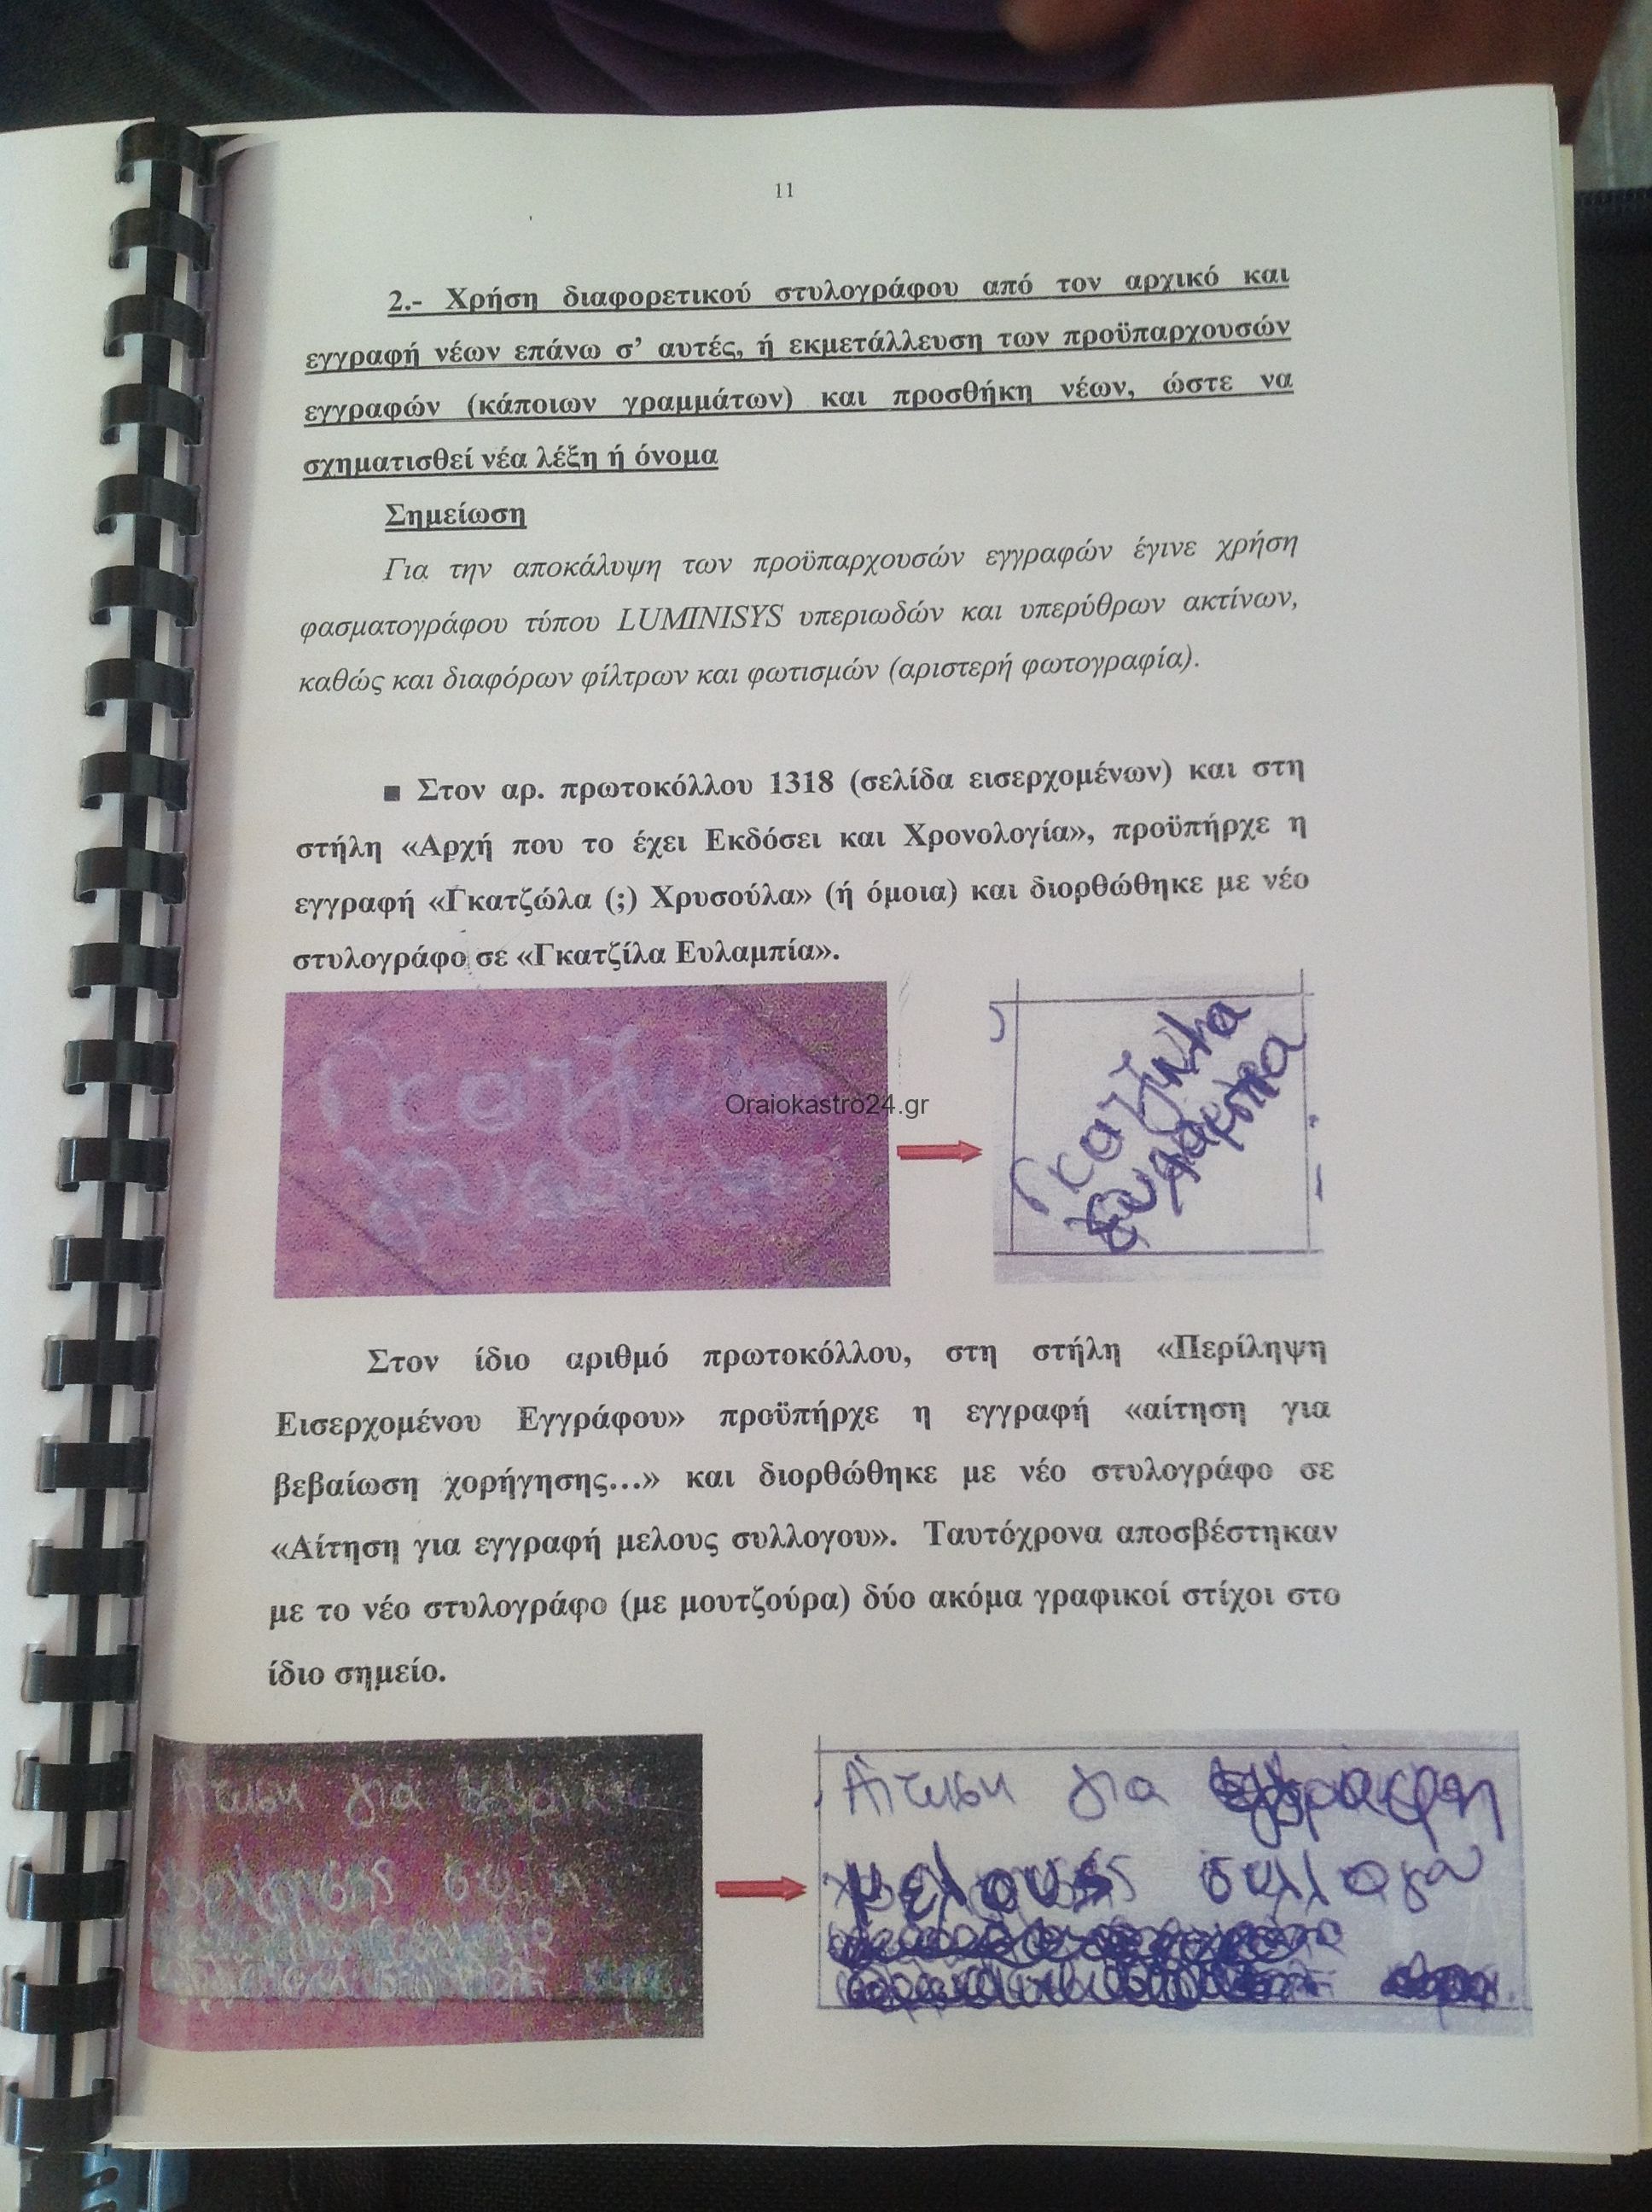 11
2.- Χρήση διαφορετικού στυλογράφου από τον αρχικό και
εγγραφή νέων επάνω σ’ αυτές, ή εκμετάλλευση των προϋπαρχουσών
εγγραφών (κάποιων γραμμάτων) και προσθήκη νέων, ώστε να
σχηματισθεί νέα λέξη ή όνομα
Σημείωση
Για την αποκάλυψη των προϋπαρχουσών εγγραφών έγινε χρήση
φασματογράφου τύπου LUMINISYS υπεριωδών και υπερύθρων ακτίνων,
καθώς και διαφόρων φίλτρων και φωτισμών (αριστερή φωτογραφία).
■ Στον αρ. πρωτοκόλλου 1318 (σελίδα εισερχομένων) και στη
στήλη «Αρχή που το έχει Εκδόσει και Χρονολογία», προϋπήρχε η
εγγραφή «Γκατζώλα (;) Χρυσούλα» (ή όμοια) και διορθώθηκε με νέο
στυλογράφο σε «Γκατζίλα Ευλαμπία».
Oraiokastro24.gr
Στον ίδιο αριθμό πρωτοκόλλου, στη στήλη «Περίληψη
Εισερχομένου Εγγράφου» προϋπήρχε η εγγραφή «αίτηση για
βεβαίωση χορήγησης...» και διορθώθηκε με νέο στυλογράφο σε
«Αίτηση για εγγραφή μελους συλλογου». Ταυτόχρονα αποσβέστηκαν
με το νέο στυλογράφο (με μουτζούρα) δύο ακόμα γραφικοί στίχοι στο
ίδιο σημείο.
Αίτηση για
Αίτηση για εγγραφη
μελους συλλογου